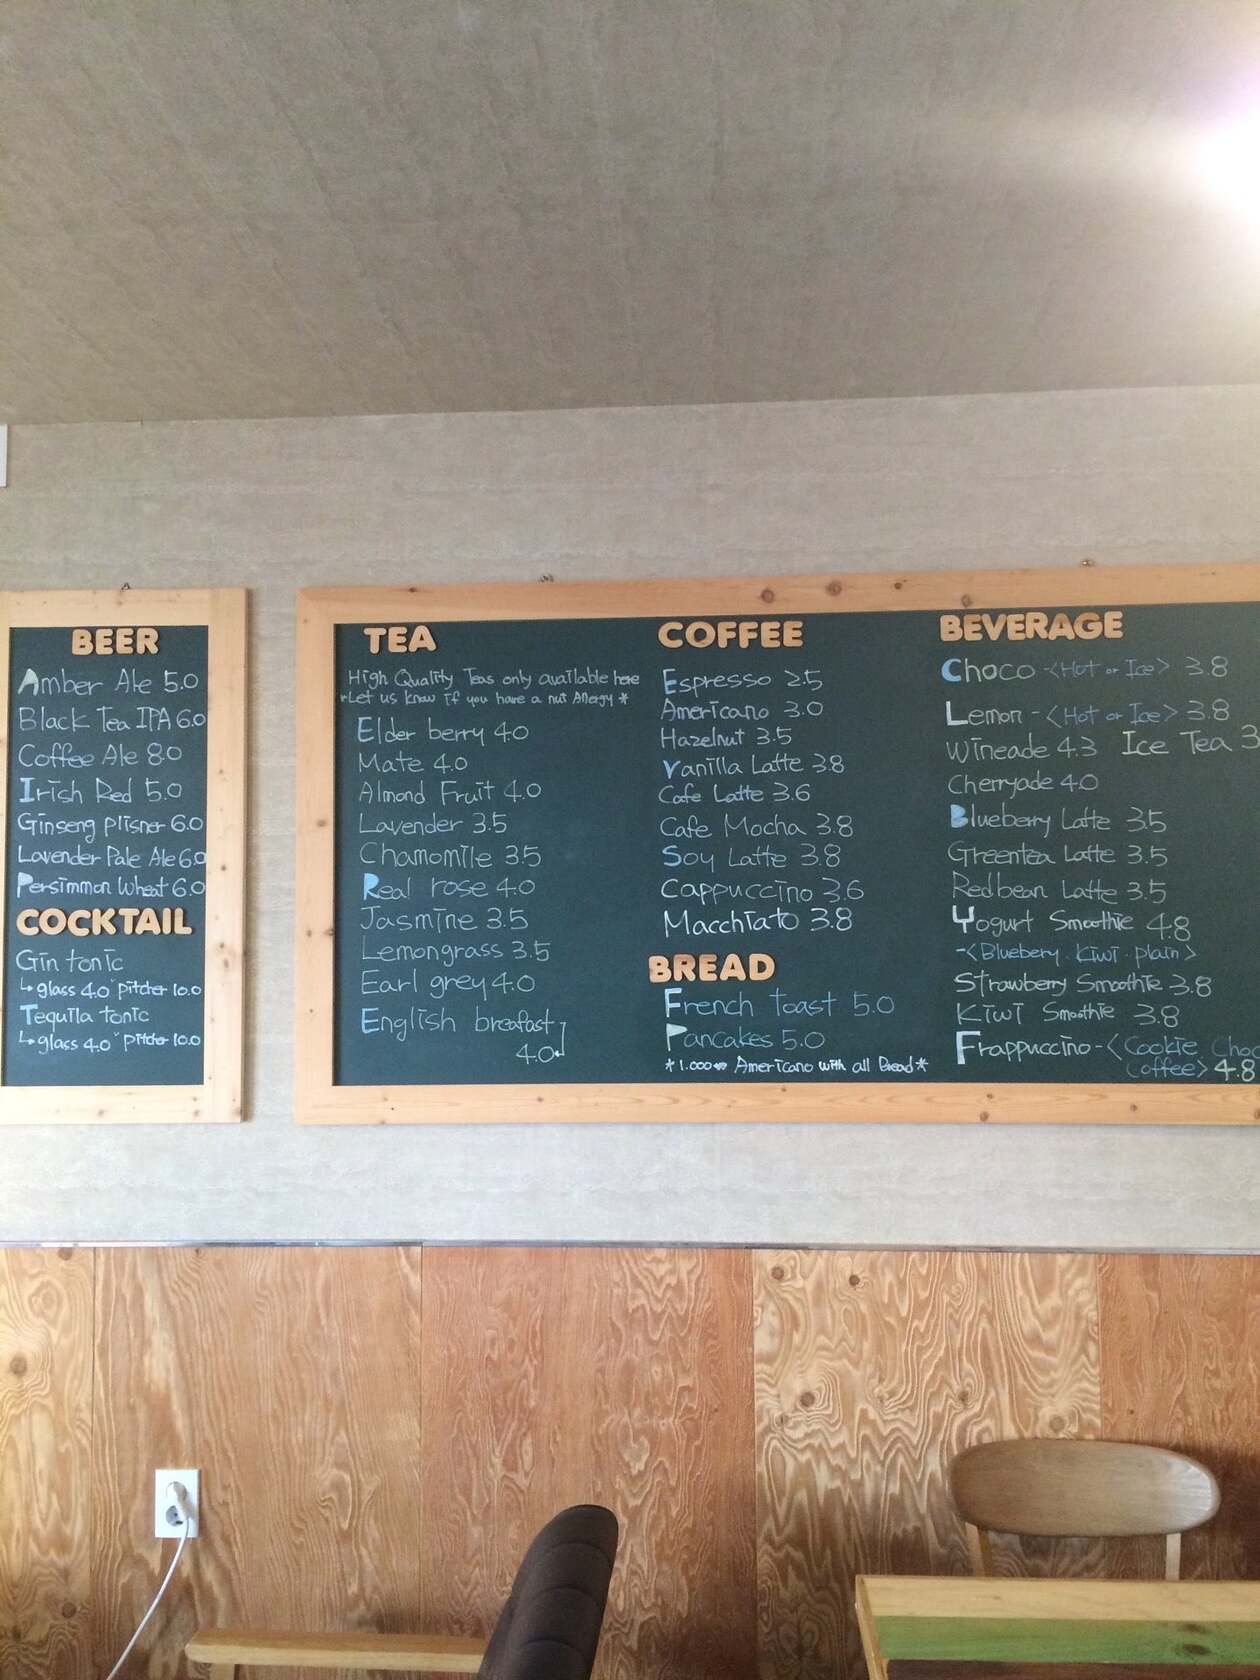 BEER
Amber Ale 5.0
Black Tea IPA 6.0
Coffee Ale 8.0
Irish Red 5.0
Ginseng plisner 6.0
Lavender Pale Ale 6.0
Persimmon Wheat 6.0
COCKTAIL
Gin tonic
↳glass 4.0 pitcher 10.0
Tequila tonic
↳glass 4.0 pitcher 10.0
TEA
High Quality Teas only available here
*Let us know if you have a nut Allergy *
Elder berry 4.0
Mate 4.0
Almond Fruit 4.0
Lavender 3.5
Chamomile 3.5
Real rose 4.0
Jasmine 3.5
Lemongrass 3.5
Earl grey 4.0
English breafast
4.0
COFFEE
Espresso 2.5
Americano 3.0
Hazelnut 3.5
Vanilla Latte 3.8
Cafe Latte 3.6
Cafe Mocha 3.8
Soy Latte 3.8
Cappuccino 3.6
Macchiato 3.8
BREAD
French toast 5.0
Pancakes 5.0
*1.000 Americano with all Bread*
BEVERAGE
Choco -<Hot or Ice> 3.8
Lemon -<Hot or Ice> 3.8
Wineade 4.3 Ice Tea 3
Cherryade 4.0
Blueberry Latte 3.5
Greentea Latte 3.5
Redbean Latte 3.5
Yogurt Smoothie 4.8
-<Blueberry. Kiwi. plain>
Strawberry Smoothie 3.8
Kiwi Smoothie 3.8
Frappuccino -<Cookie Choc
Coffee> 4.8